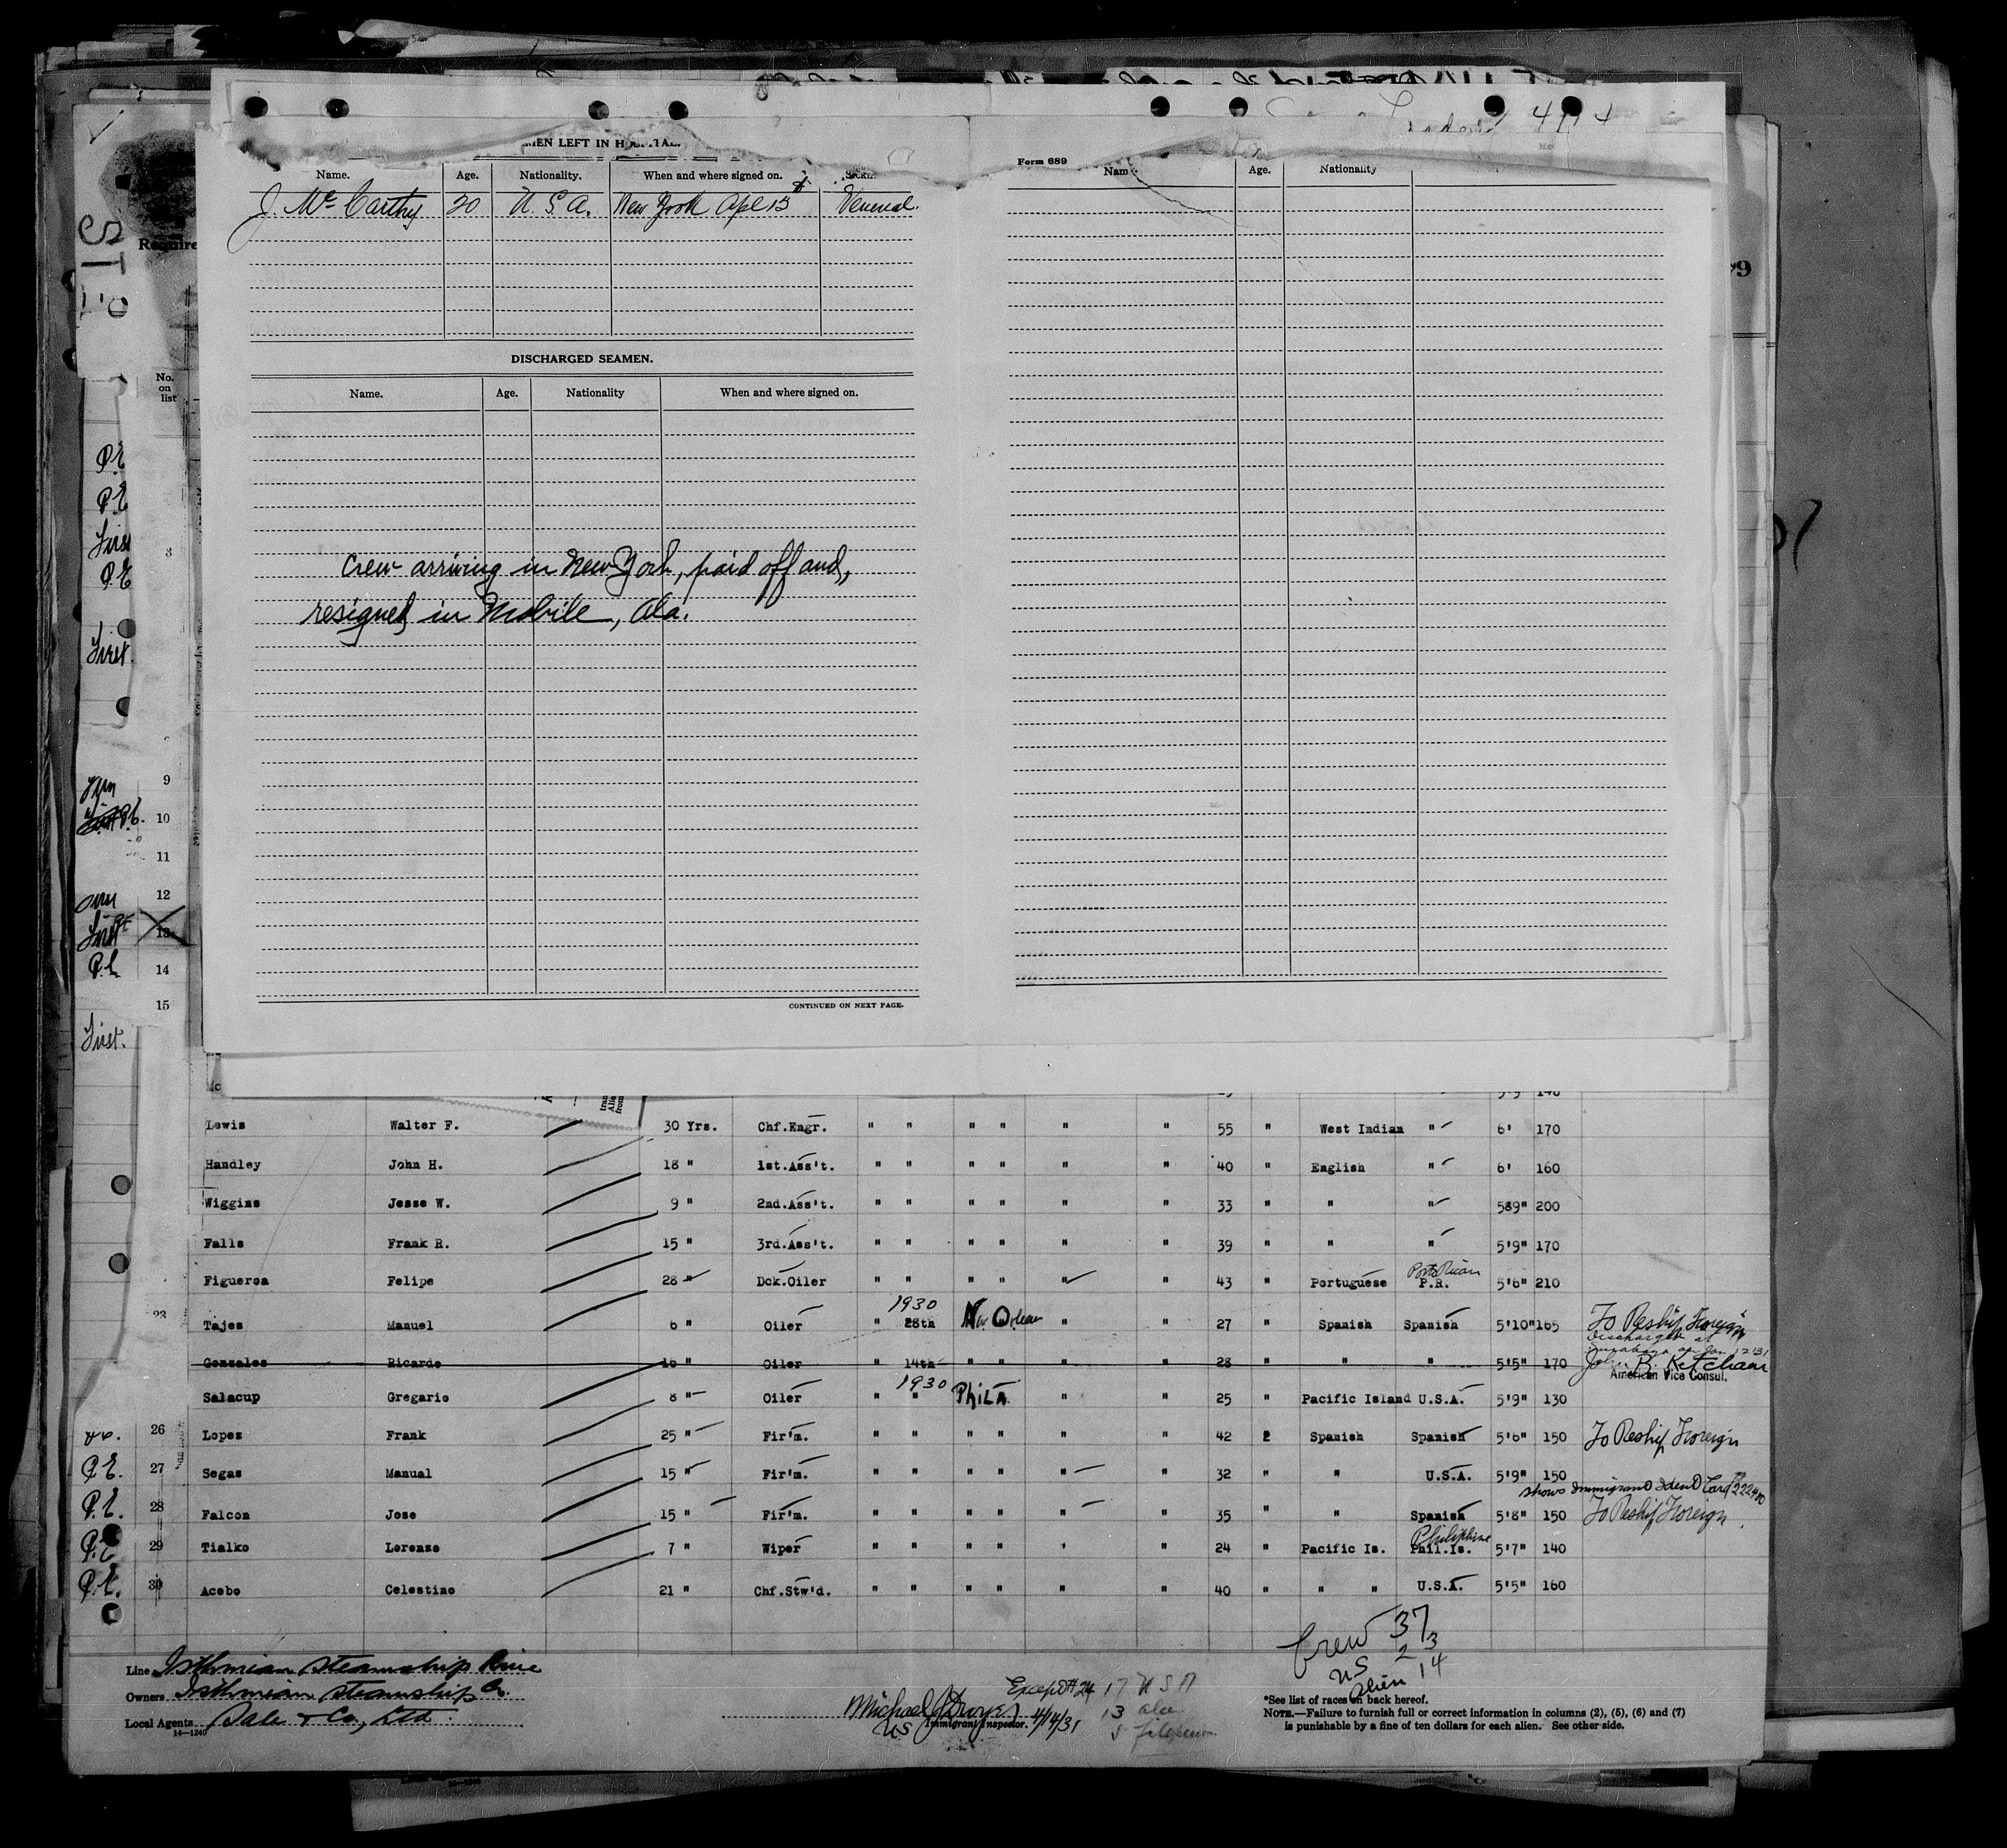 MEN LEFT IN HOSPITAL.
Name. Age. Nationality. When and where signed on.
J. McCarthy 20 U.S.A. New York Apl 13 Venereal.
DISCHARGED SEAMEN.
Name. Age. Nationality When and where signed on.
Crew arriving in New York, paid off and,
resigned in Mobile, Ala.
CONTINUED ON NEXT PAGE.
Form 689
Nam Age. Nationality
Require
No.
on
list
P.E
P.E
First
3
P.E
First.
9
10
11
12
13
P.E.
14
15
First.
Lewis Walter F. 30 Yrs. Chf.Engr. " " " " " " 55 " West Indian " 6' 170
Handley John H. 18 " 1st.Ass't. " " " " " " 40 " English " 6' 160
Wiggins Jesse W. 9 " 2nd.Ass't. " " " " " " 33 " " " 589" 200
Falls Frank R. 15 " 3rd.Ass't. " " " " " " 39 " " " 5'9" 170
Figueroa Felipe 28 " Dck.Oiler " " " " " " 43 " Portuguese Porto Rican P.R. 5'6" 210
23 Tajes Manuel 6 " Oiler " 1930 28th New Orlean " " 27 " Spanish Spanish 5'10" 165 To Reship Foreign
Discharged at
Gonzales Ricardo 16 " Oiler " 14th " " " " 28 " " " 5'5" 170 John B. Ketcham
American Vice Consul.
Salacup Gregario 8 " Oiler " " 1930 PhilA. " " 25 " Pacific Island U.S.A. 5'9" 130
26 Lopez Frank 25 " Fir'm. " " " " " " 42 2 Spanish Spanish 5'6" 150 To Reship Foreign
P.E. 27 Segas Manual 15 " Fir'm. " " " " " " 32 " " U.S.A. 5'9" 150
shows Immigrant Ident Card
P.E. 28 Falcon Jose 15 " Fir'm. " " " " " " 35 " " Spanish 5'8" 150 To Reship Foreign
P.E. 29 Tialko Lorenzo 7 " Wiper " " " " ' " 24 " Pacific Is. Philippine Phil.Is. 5'7" 140
P.E. 30 Acebo Celestino 21 " Chf.Stw'd. " " " " " " 40 " " " U.S.A. 5'5" 160
Crew 37
US 23
Alien 14
Line Isthmian Steamship Line
Owners Isthmian Steamship Co.
Local Agents Dale & Co., Ltd.
14-1240
Except #24 17 USA
Michael J Dwyer 4/14/31 13
US Immigrant Inspector. 5
*See list of races on back hereof.
NOTE.—Failure to furnish full or correct information in columns (2), (5), (6) and (7)
is punishable by a fine of ten dollars for each alien. See other side.